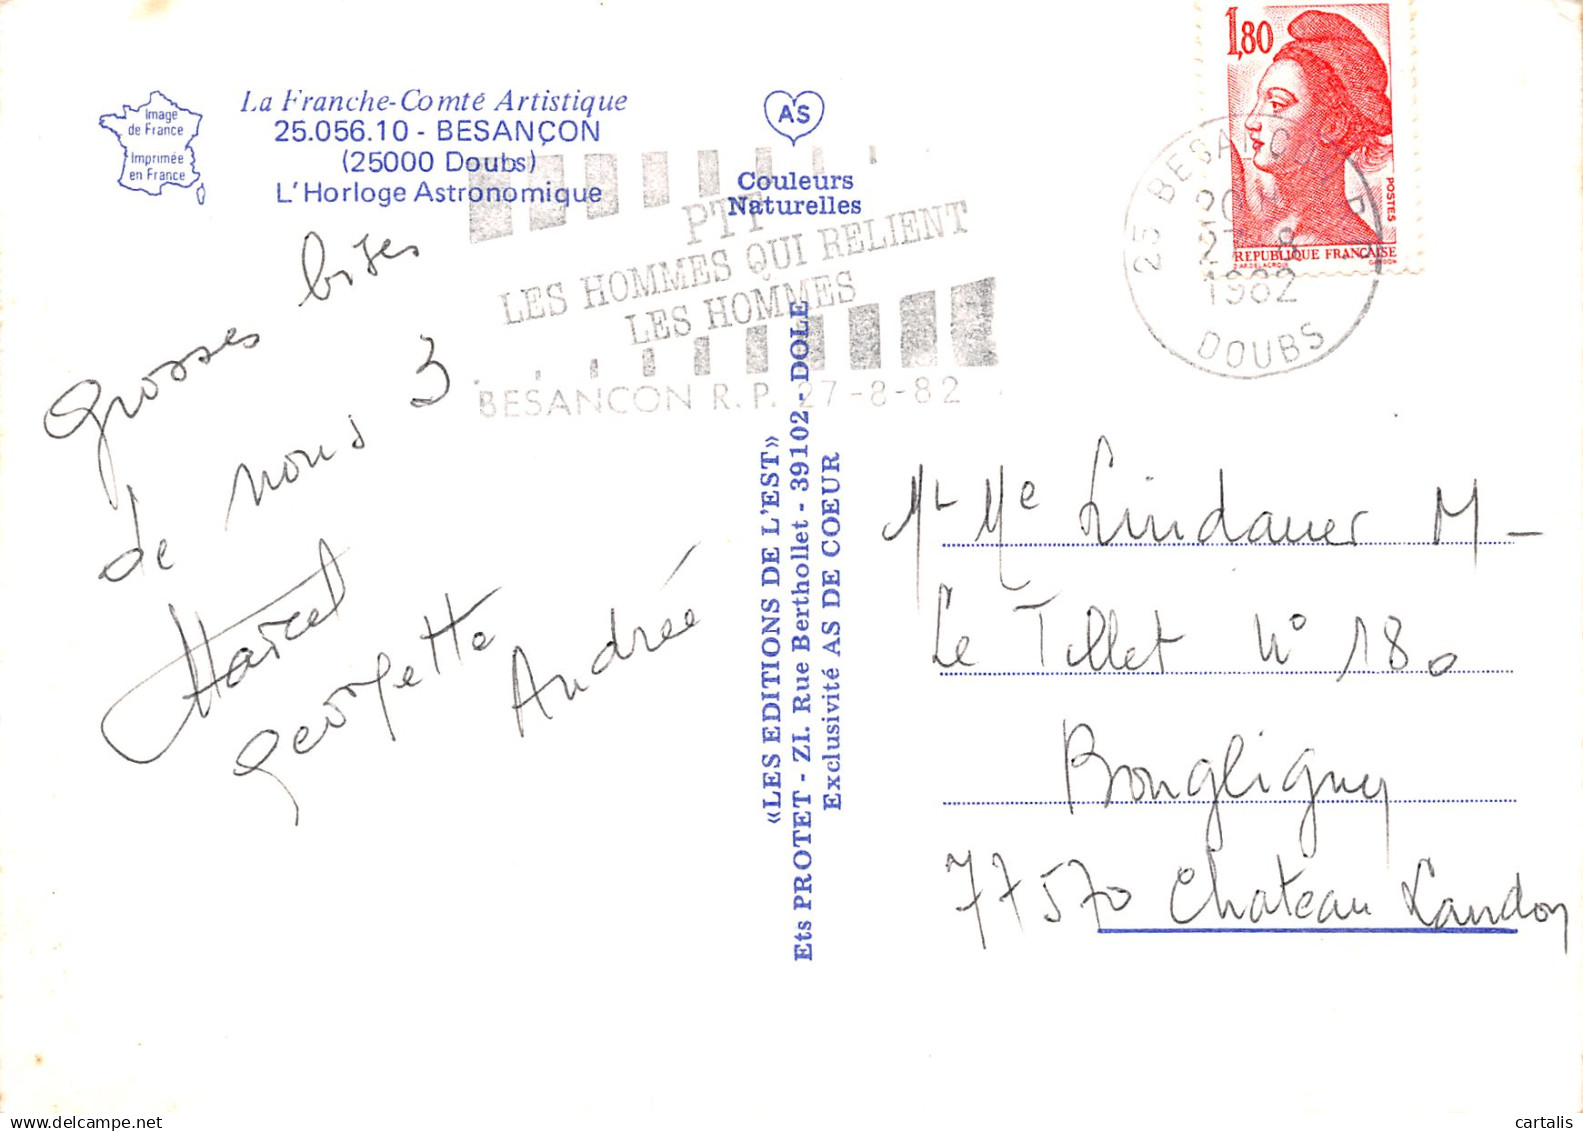 Image
de France
Imprimée
en France
La Franche-Comté Artistique
25.056.10 - BESANÇON
(25000 Doubs)
L'Horloge Astronomique
A'S
Couleurs
Naturelles
1,80
POSTES
REPUBLIQUE FRANÇAISE
D'AP. DELACROIX GANDON
25 BESANCON R P
20
27 - 8
1982
DOUBS
PTT
LES HOMMES QUI RELIENT
LES HOMMES
BESANCON R. P. 27-8-82
Grosses bises
de nous 3
Marcel
Georgette
Andrée
«LES EDITIONS DE L'EST»
Ets PROTET - ZI. Rue Berthollet - 39102 - DOLE
Exclusivité AS DE COEUR
Mr Me Lindauer M -
Le Tillet N° 180
Bougligny
77570 Chateau Landon
cartalis